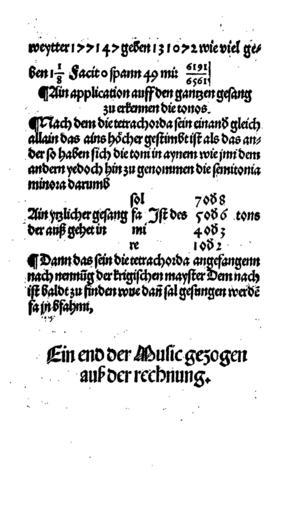 weytter 177147 geben 131072 wie viel ge-
ben 1 1/8 Facit 0 spann 49 mi: 6191/6561
¶ Ain application auff den gantzen gesang
zu erkennen die tonos.
¶ Nach dem die tetrachorda sein einand gleich
allain das ains höcher gestimbt ist als das an-
der so haben sich die toni in aynem wie jm dem
andern yedoch hin zu genommen die semitonia
minora darumb
sol 7 od 8
Ain yetzlicher gesang fa Ist des 5 od 6 tons
der auß gehet in mi 4 od 3
re 1 od 2
¶ Dann das sein die tetrachorda angefangenn
nach nennūg der krigischen mayster Dem nach
ist baldt zu finden wue dañ sal gesungen werdē
fa in bfahmi,
Ein end der Music gezogen
auß der rechnung.